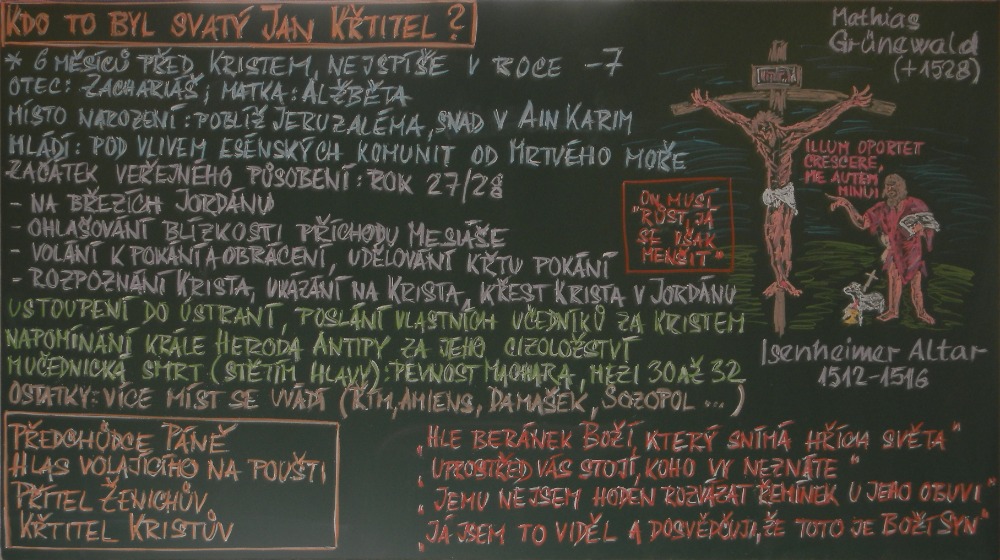 KDO TO BYL SVATÝ JAN KŘTITEL?
* 6 MĚSÍCŮ PŘED KRISTEM, NEJSPÍŠE V ROCE -7
OTEC: ZACHARIÁŠ; MATKA: ALŽBĚTA
MÍSTO NAROZENÍ: POBLÍŽ JERUZALÉMA, SNAD V AIN KARIM
MLÁDÍ: POD VLIVEM ESÉNSKÝCH KOMUNIT OD MRTVÉHO MOŘE
ZAČÁTEK VEŘEJNÉHO PŮSOBENÍ: ROK 27/28
- NA BŘEZÍCH JORDÁNU
- OHLAŠOVÁNÍ BLÍZKOSTI PŘÍCHODU MESIÁŠE
- VOLÁNÍ K POKÁNÍ A OBRÁCENÍ, UDĚLOVÁNÍ KŘTU POKÁNÍ
- ROZPOZNÁNÍ KRISTA, UKÁZÁNÍ NA KRISTA, KŘEST KRISTA V JORDÁNU
USTOUPENÍ DO ÚSTRANÍ, POSLÁNÍ VLASTNÍCH UČEDNÍKŮ ZA KRISTEM
NAPOMÍNÁNÍ KRÁLE HERODA ANTIPY ZA JEHO CIZOLOŽSTVÍ
MUČEDNICKÁ SMRT (STĚTÍM HLAVY): PEVNOST MACHARA, MEZI 30 AŽ 32
OSTATKY: VÍCE MÍST SE UVÁDÍ (ŘÍM, AMIENS, DAMAŠEK, SOZOPOL ...)
PŘEDCHŮDCE PÁNĚ
HLAS VOLAJÍCÍHO NA POUŠTI
PŘÍTEL ŽENICHŮV
KŘTITEL KRISTŮV
„HLE BERÁNEK BOŽÍ, KTERÝ SNÍMÁ HŘÍCH SVĚTA"
„UPROSTŘED VÁS STOJÍ, KOHO VY NEZNÁTE"
„JEMU NEJSEM HODEN ROZVÁZAT ŘEMÍNEK U JEHO OBUVI"
„JÁ JSEM TO VIDĚL A DOSVĚDČUJI, ŽE TOTO JE BOŽÍ SYN"
„ON MUSÍ
RŮST, JÁ
SE VŠAK
MENŠIT"
Mathias
Grünewald
(+1528)
ILLUM OPORTET
CRESCERE,
ME AUTEM
MINUI
Isenheimer Altar
1512-1516